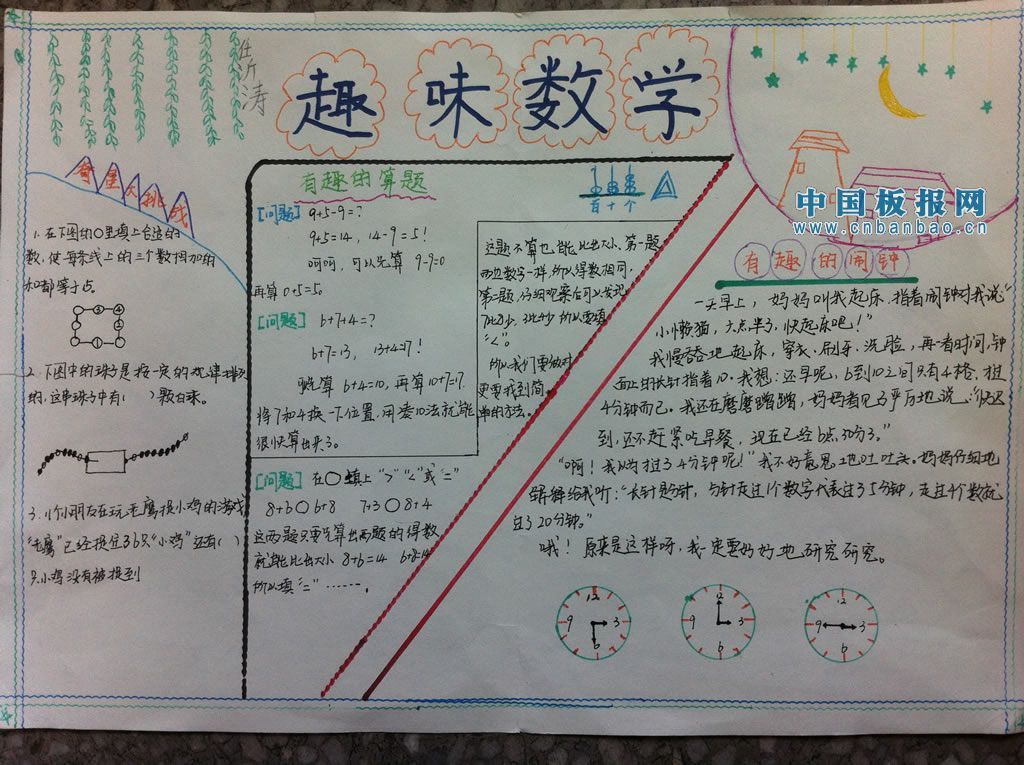 趣味数学
奇星大挑战
1. 在下图的○里填上合适的
数,使每条线上的三个数相加的
和都等于
2. 下图中的珠子是按一定的规律排列
的,这串珠子中有( )颗白珠。
3. 个小朋友在玩老鹰捉小鸡的游戏
"老鹰"已经捉住36只"小鸡"还有( )
只小鸡没有被捉到
有趣的算题
[问题] 9+5-9=?
9+5=14, 14-9=5!
呵呵,可以先算 9-9=0
再算 0+5=5。
[问题] 6+7+4=?
6+7=13, 13+4=17!
先算 6+4=10,再算10+7=17.
将7和4换一下位置,用凑10法就能
很快算出来了。
[问题] 在○填上">""<"或"="
8+6○6+8 7+3○8+4
这两题只要先算出两题的得数
就能比出大小 8+6=14 6+8=14
所以填"="……,
百十个
这题不算也能比出大小、第一题
两边数字一样,所以得数相同,
第二题,仔细观察后可以发现
7比8少, 3比4少 所以要填
"<"。
所以我们要做对
更要找到简
单的方法。
有趣的闹钟
一天早上,妈妈叫我起床,指着闹钟对我说"
小懒猫,六点半了,快起床吧!"
我慢吞吞地起床,穿衣、刷牙、洗脸,再看时间,钟
面上的长针指着10。我想:还早呢,6到10之间只有4格,才过
4分钟而已。我还在磨磨蹭蹭,妈妈看见了严厉地说:"快迟
到,还不赶紧吃早餐,现在已经6点50分了。"
"啊!我以为才过了4分钟呢!"我不好意思地吐吐舌。妈妈仔细地
解释给我听:"长针是分针,分针走过1个数字代表过了5分钟,走过4个数就
过了20分钟。"
哦!原来是这样呀,我一定要好好地研究研究。
12 9 3 6
12 9 3 6
12 9 3 6
中国板报网
www.cnbanbao.cn